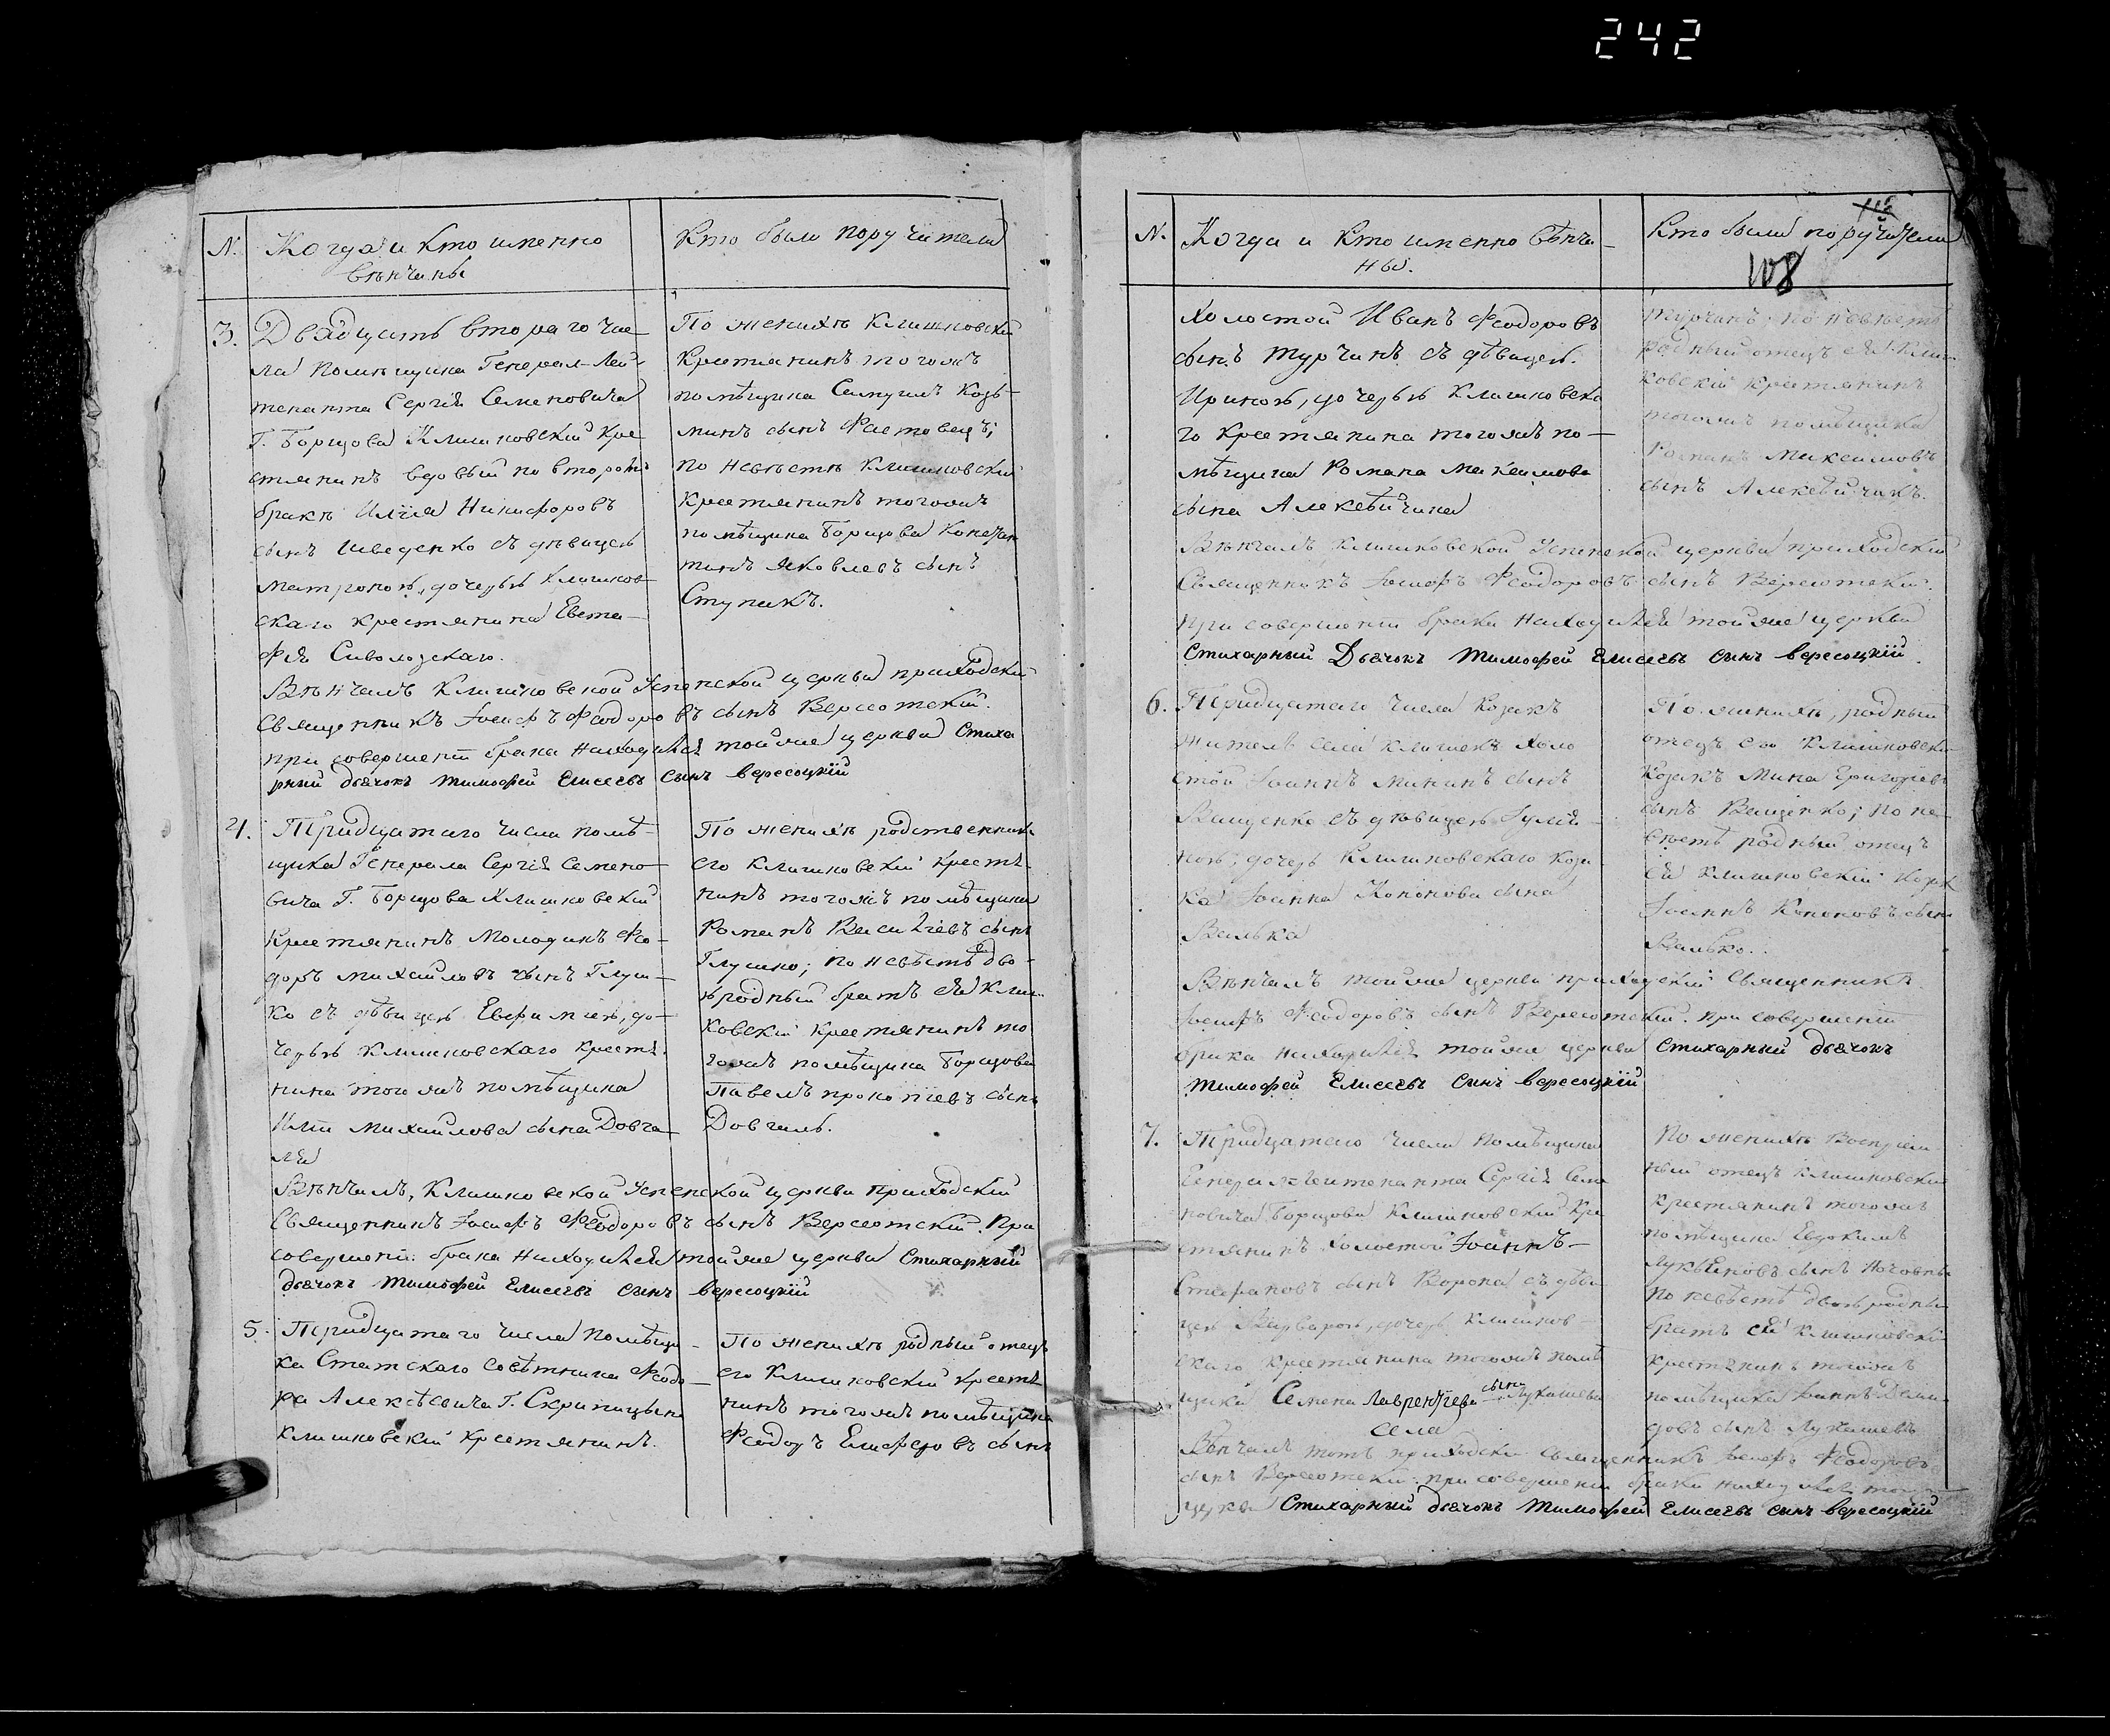 242
N.
Когда и кто именно
вѣнчаны
Кто были поручители
3.
Двадцать втораго чис-
ла помѣщика Генерал-Лей-
тенанта Сергія Семеновича
Г. Борщова Клишковский кре
стянинъ вдовый по второмъ
бракѣ Илія Никифоровъ
сынъ Шведенко съ дѣвицею
Матроною, дочерью Клишков
скаго крестянина Евста-
фія Сиволозскаго.
По женихѣ Клишковский
крестянинъ тогожъ
помѣщика Самуилъ Козь-
минъ сынъ Фастовецъ;
по невѣстѣ Клишковский
крестянинъ тогожъ
помѣщика Борщова Констан
тинъ Яковлевъ сынъ
Ступакъ.
Вѣнчалъ Клишковской Успенской церкви приходский
Священникъ Іосифъ Феодоровъ сынъ Вересотский.
при совершеніи брака находился тойже церкви Стиха
рный дьячокъ Тимофей Елисеевъ сынъ Вересоцкій
4.
Тридцатаго числа помѣ-
щика Генерала Сергія Семено-
вича Г. Борщова Клишковский
крестянинъ молодикъ Фео-
доръ Михайловъ сынъ Глуш-
ко съ дѣвицею Евфиміею, до-
черью Клишковскаго крестя
нина тогожъ помѣщика
Иліи Михайлова сына Довга-
ля
По женихѣ родственникъ
его Клишковский крестя-
нинъ тогожъ помѣщика
Романъ Василіевъ сынъ
Глушко; по невѣстѣ дво-
юродный братъ ея Клиш
ковский крестянинъ то
гожъ помѣщика Борщова
Павелъ Прокопіевъ сынъ
Довгаль.
Вѣнчалъ, Клишковской Успенской церкви приходский
Священникъ Іосифъ Феодоровъ сынъ Вересотский. При
совершеніи брака находился тойже церкви Стихарный
дьячокъ Тимофей Елисеевъ сынъ Вересоцкій
5.
Тридцатаго числа помѣщи-
ка Статскаго совѣтника Феодо-
ра Алексѣевича Г. Скрипицына
Клишковский крестянинъ.
По женихѣ родный отецъ
его Клишковский крестя
нинъ тогожъ помѣщика
Феодоръ сынъ
N.
Когда и кто именно вѣнча-
ны.
Кто были поручители
108
холостой Иванъ Феодоровъ
сынъ Турчинъ съ дѣвицею.
Ириною, дочерью Клишковска
го крестянина тогожъ по-
мѣщика Романа Максимова
сына Алексѣйчика
Турчинъ; по невѣстѣ
родный отецъ ея Клиш-
ковский крестянинъ
тогожъ помѣщика
Романъ Максимовъ
сынъ Алексѣйчикъ.
Вѣнчалъ Клишковской Успенской церкви приходский
Священникъ Іосифъ Феодоровъ сынъ Вересотский.
при совершеніи брака находился тойже церкви
Стихарный Дьячокъ Тимофей Елисеевъ сынъ Вересоцкій
6.
Тридцатаго числа козакъ
житель села Клишекъ холо
стой Іоаннъ Мининъ сынъ
Ващенко съ дѣвицею Іулія-
ною, дочерь Клишковскаго коза-
ка Іоанна Кононова сына
Валька
По женихѣ, родный
отецъ его Клишковский
козакъ Мина Григоріевъ
сынъ Ващенко; по не-
вѣстѣ родный отецъ
ея Клишковский козакъ
Іоаннъ Кононовъ сынъ
Валько.
Вѣнчалъ тойже церкви приходский Священникъ
Іосифъ Феодоровъ сынъ Вересотский. при совершеніи
брака находился тойже церкви Стихарный дьячокъ
Тимофей Елисеевъ сынъ Вересоцкій
7.
Тридцатаго числа помѣщика
Генерал-Лейтенанта Сергія Семе
новича Борщова Клишковский кре
стянинъ холостой Іоаннъ-
Стефановъ сынъ Ворона съ дѣви
цею Варварою, дочерь Клишков-
скаго крестянина тогожъ помѣ
щика Семена Лаврентіева сына Лукашева
По женихѣ воспріем
ный отецъ Клишковский
крестянинъ тогожъ
помѣщика Евдокимъ
сынъ
по невѣстѣ двоюродный
братъ ея Клишковский
крестянинъ тогожъ
помѣщика Іоаннъ Деми-
довъ сынъ Лукашевъ
села
Вѣнчалъ тотъ приходский священникъ Іосифъ Феодоровъ
сынъ Вересотский. при совершеніи брака находился той
церкви Стихарный дьячокъ Тимофей Елисеевъ сынъ Вересоцкій